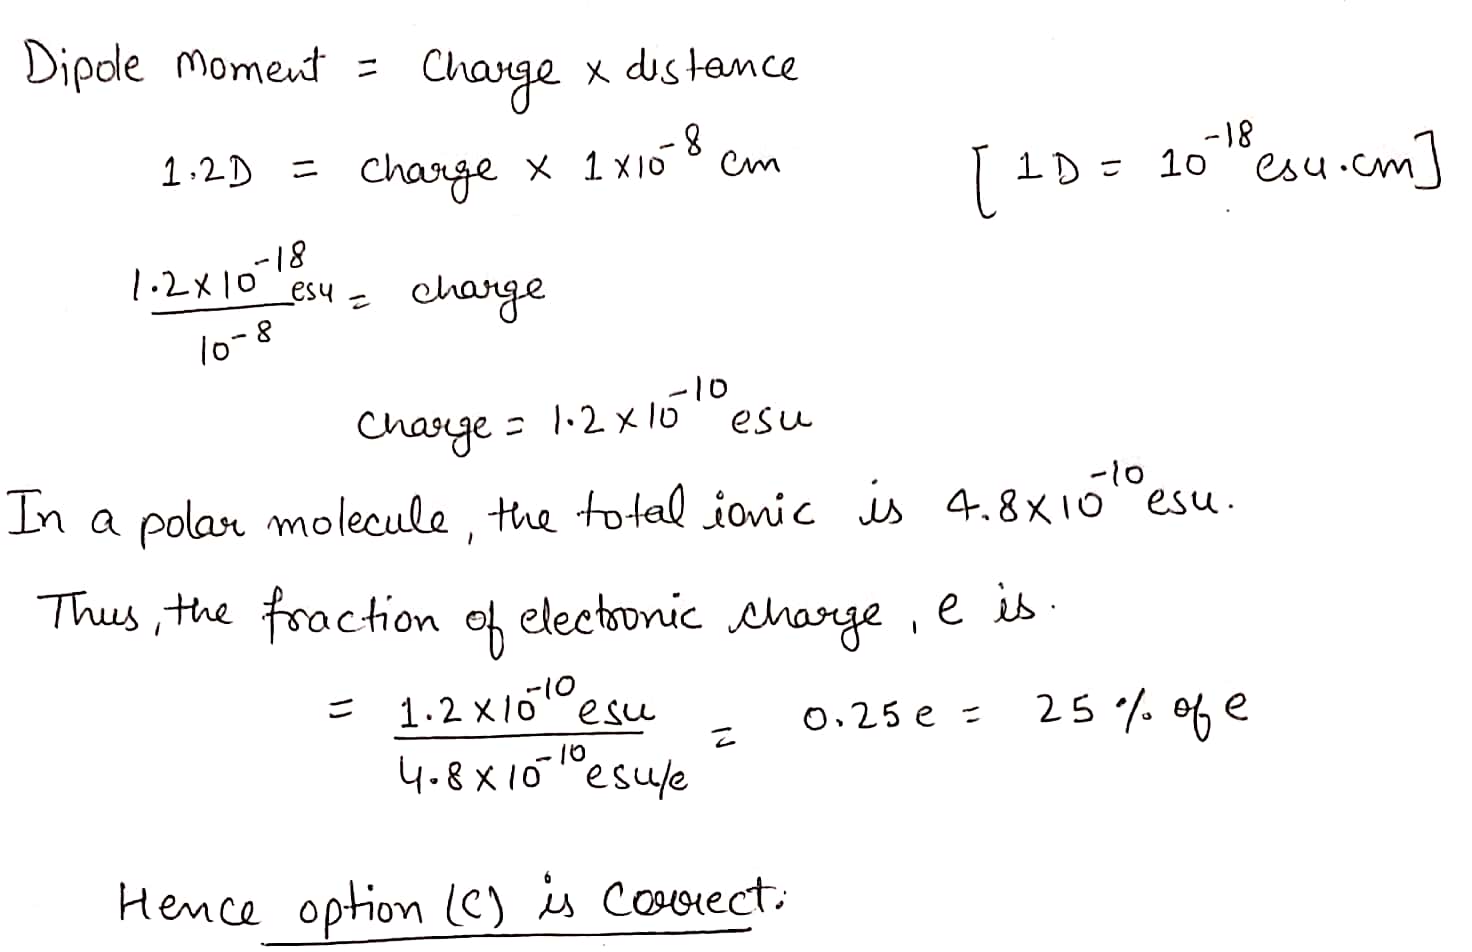 Dipole Moment = Charge x distance
1.2D = Charge x 1x10⁻⁸ cm [1D = 10⁻¹⁸ esu.cm]
1.2x10⁻¹⁸ esu / 10⁻⁸ = charge
Charge = 1.2x10⁻¹⁰ esu
In a polar molecule, the total ionic is 4.8x10⁻¹⁰ esu.
Thus, the fraction of electronic charge, e is.
= 1.2x10⁻¹⁰ esu / 4.8x10⁻¹⁰ esu/e = 0.25e = 25 % of e
Hence option (C) is Correct.